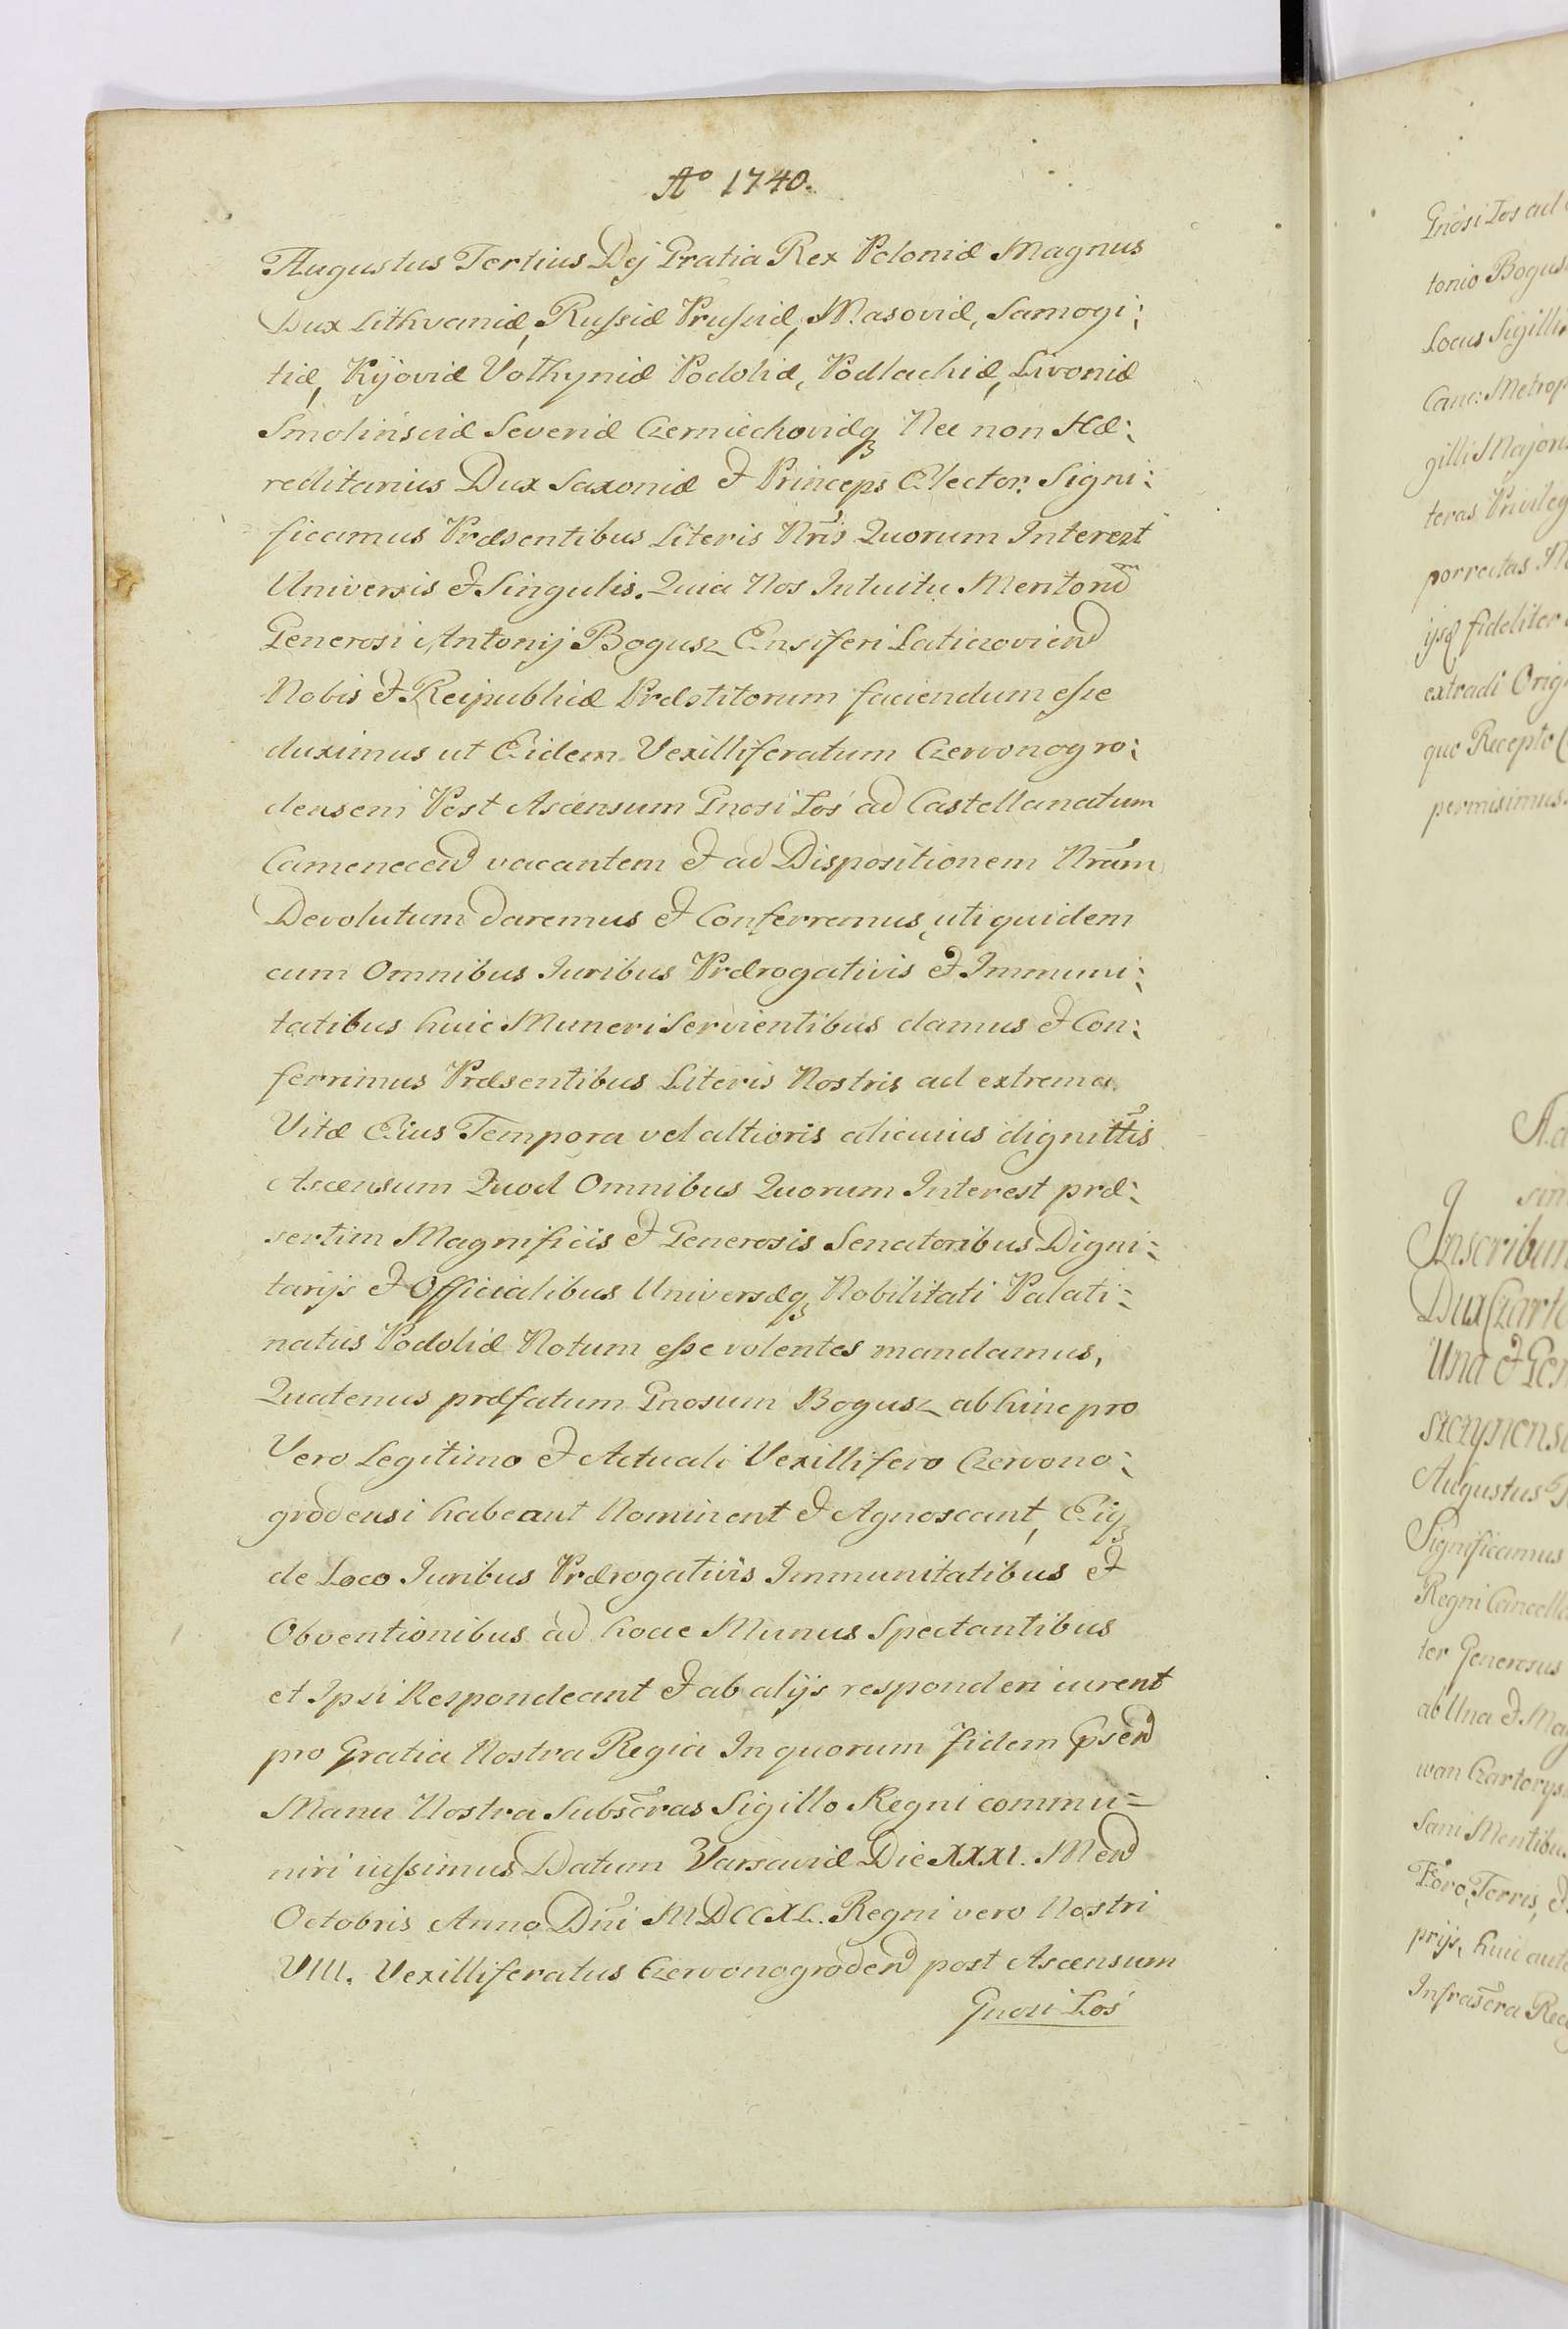 Aº 1740.
Augustus Tertius Dej Gratia Rex Poloniæ Magnus
Dux Lithvaniæ, Russiæ Prussiæ, Masoviæ, Samogi:
tiæ, Kijoviæ Volhyniæ Podoliæ, Podlachiæ, Livoniæ
Smolinsciæ Severiæ Czerniechoviæq3 Nec non Hæ:
reditarius Dux Saxoniæ & Princeps Elector. Signi:
ficamus Præsentibus Literis Nris Quorum Interest
Universis & Singulis. Quia Nos Intuitu Meritorũ
Generosi Antonij Bogusz Ensiferi Laticzovien
Nobis & Reipubliæ Præstitorum faciendum esse
duximus ut Eidem Vexilliferatum Czervonogro:
densem Post Ascensum Gnosi Łoś ad Castellanatum
Camenecen vacantem & ad Dispositionem Nram
Devolutum daremus & Conferremus, uti quidem
cum Omnibus Iuribus Prærogativis & Immuni:
tatibus huic Muneri Servientibus damus & Con:
ferrimus Præsentibus Literis Nostris ad extrema
Vitæ Eius Tempora vel altioris alicuius dignittis
Ascensum Quod Omnibus Quorum Interest præ:
sertim Magnificis & Generosis Senatoribus Digni:
tarijs & Officialibus Universæq3 Nobilitati Palati:
natus Podoliæ Notum esse volentes mandamus,
Quatenus præfatum Gnosum Bogusz abhinc pro
Vero Legitimo & Actuali Vexillifero Czervono:
grodensi habeant Nominent & Agnoscant, Eiq3
de Loco Iuribus Prærogativis Immunitatibus &
Obventionibus ad hocce Munus Spectantibus
et Ipsi Respondeant & ab alijs responderi curent
pro Gratia Nostra Regia In quorum fidem Psen
Manu Nostra Subscras Sigillo Regni commu=
niri iussimus Datum Varsaviæ Die XXXI. Men
Octobris Anno Dni MDCCXL. Regni vero Nostri
VIII. Vexilliferatus Czervonogroden post Ascensum
Gnosi Łoś
Gnosi Łos ad
tonio Bogus
Locus Sigilli
Canc: Metrop
gilli Majoris
teras Privileg
porrectas
ijsq3 fideliter
extradi Orig
quo Recepto
permisimus
Inscribun
Dux Czarto
Una & Gen
Augustus
Significamus
Regni Cancella
ter Generosus
ab Una & Mag
wan Czartorys
Sani Mentibus
Foro, Terris, &
prijs, huic aute
Infrascra Rec